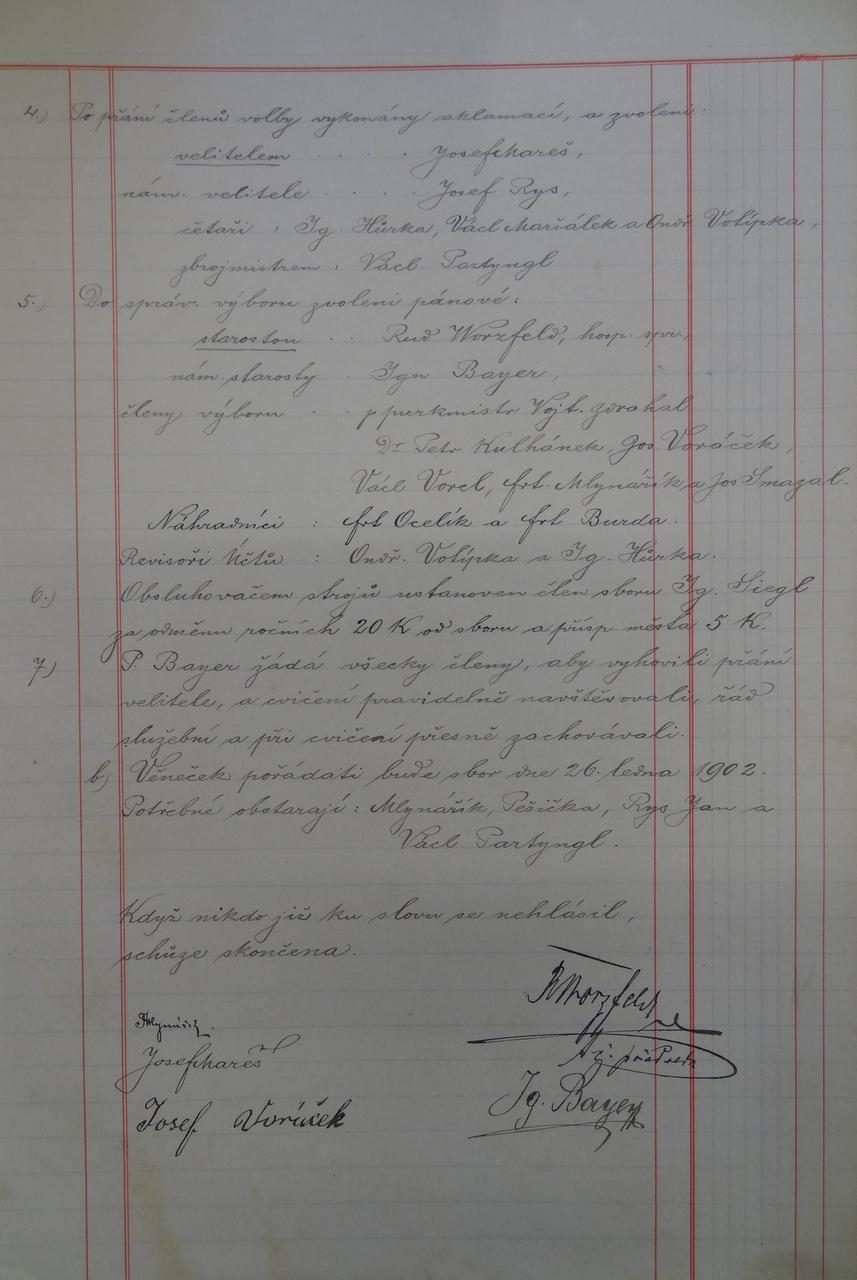 4.) Po přání členů volby vykonány aklamací, a zvoleni:
velitelem . . . Josef Mareš,
nám. velitele . . . Josef Rys,
četaři : Ig. Hůrka, Václ Maršálek a Ondř Votípka,
zbrojmistrem : Václ. Partyngl
5.) Do správ. výboru zvoleni pánové:
starostou . . Rud Worzfeld, hosp. spr.,
nám. starosty . Ign Bayer,
členy výboru . . p purkmistr Vojt. Zdrahal
Dr Petr Kulhánek, Jos Voráček,
Václ Vorel, frt. Mlynářík a Jos Smazal.
Náhradníci : frt Ocelík a frt Burda.
Revisoři Účtů : Ondř. Votípka a Ig. Hůrka.
6.) Obsluhovačem strojů ustanoven člen sboru Ig. Siegl
za odměnu ročních 20 K od sboru a přísp. města 5 K.
7) P. Bayer žádá všecky členy, aby vyhovili přání
velitele, a cvičení pravidelně navštěvovali, řád
služební a při cvičení přesně zachovávali.
b) Věneček pořádati bude sbor dne 26. ledna 1902.
Potřebné obstarají : Mlynářík, Pešička, Rys Jan a
Václ Partyngl.
Když nikdo již ku slovu se nehlásil,
schůze skončena.
RWorzfeld
Mlynářík
Josef Mareš
Ig. Bayer
Josef Voráček